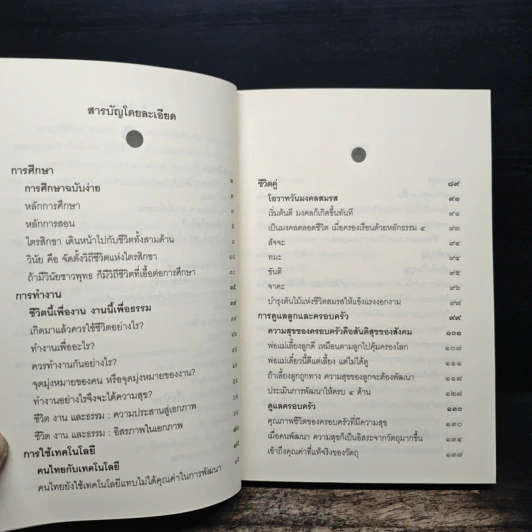 สารบัญโดยละเอียด
การศึกษา
การศึกษาฉบับง่าย
หลักการศึกษา
หลักการสอน
ไตรสิกขา เดินหน้าไปกับชีวิตทั้งสามด้าน
วินัย คือ จัดตั้งวิถีชีวิตแห่งไตรสิกขา
ถ้ามีวินัยชาวพุทธ ก็มีวิถีชีวิตที่เอื้อต่อการศึกษา
การทำงาน
ชีวิตนี้เพื่องาน งานนี้เพื่อธรรม
เกิดมาแล้วควรใช้ชีวิตอย่างไร?
ทำงานเพื่ออะไร?
ควรทำงานกันอย่างไร?
จุดมุ่งหมายของคน หรือจุดมุ่งหมายของงาน?
ทำงานอย่างไรจึงจะได้ความสุข?
ชีวิต งาน และธรรม : ความประสานสู่เอกภาพ
ชีวิต งาน และธรรม : อิสรภาพในเอกภาพ
การใช้เทคโนโลยี
คนไทยกับเทคโนโลยี
คนไทยยังใช้เทคโนโลยีแทบไม่ได้คุณค่าในการพัฒนา
ชีวิตคู่ ๘๙
โอวาทวันมงคลสมรส ๙๑
เริ่มต้นดี มงคลก็เกิดขึ้นทันที ๙๑
เป็นมงคลตลอดชีวิต เมื่อครองเรือนด้วยหลักธรรม ๔
สัจจะ ๙๔
ทมะ ๙๔
ขันติ ๙๕
จาคะ ๙๖
บำรุงต้นไม้แห่งชีวิตสมรสให้แข็งแรงงอกงาม ๙๗
การดูแลลูกและครอบครัว ๙๙
ความสุขของครอบครัวคือสันติสุขของสังคม ๑๐๑
พ่อแม่เลี้ยงลูกดี เหมือนตามลูกไปคุ้มครองโลก
พ่อแม่เดี๋ยวนี้ดีแต่เลี้ยง แต่ไม่ได้ดู ๑๑๑
ถ้าเลี้ยงลูกถูกทาง ความสุขของลูกจะต้องพัฒนา ๑๑๗
ประเมินการพัฒนาให้ครบ ๔ ด้าน ๑๒๗
ดูแลครอบครัว ๑๓๐
คุณภาพชีวิตของครอบครัวที่มีความสุข
เมื่อคนพัฒนา ความสุขก็เป็นอิสระจากวัตถุมากขึ้น ๑๓๔
เข้าถึงคุณค่าที่แท้จริงของวัตถุ ๑๓๗